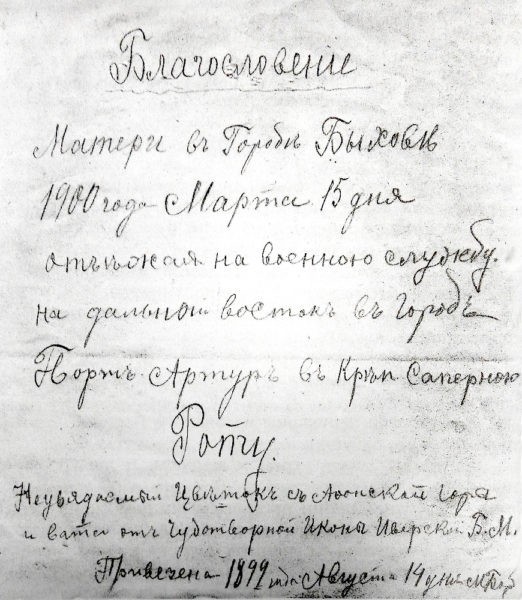 Благословеніе
Матери въ Городѣ Быховѣ
1900 года Марта 15 дня
отъѣжая на военною службу.
на дальной востокъ въ городъ
Портъ Артуръ въ Крѣп. Саперною
Роту.
Неувядаемый Цвѣтокъ съ Аѳонской горы
и вата отъ Чудотворной Иконы Иверской Б. М.
Привезена 1899 года Августа 14 дня